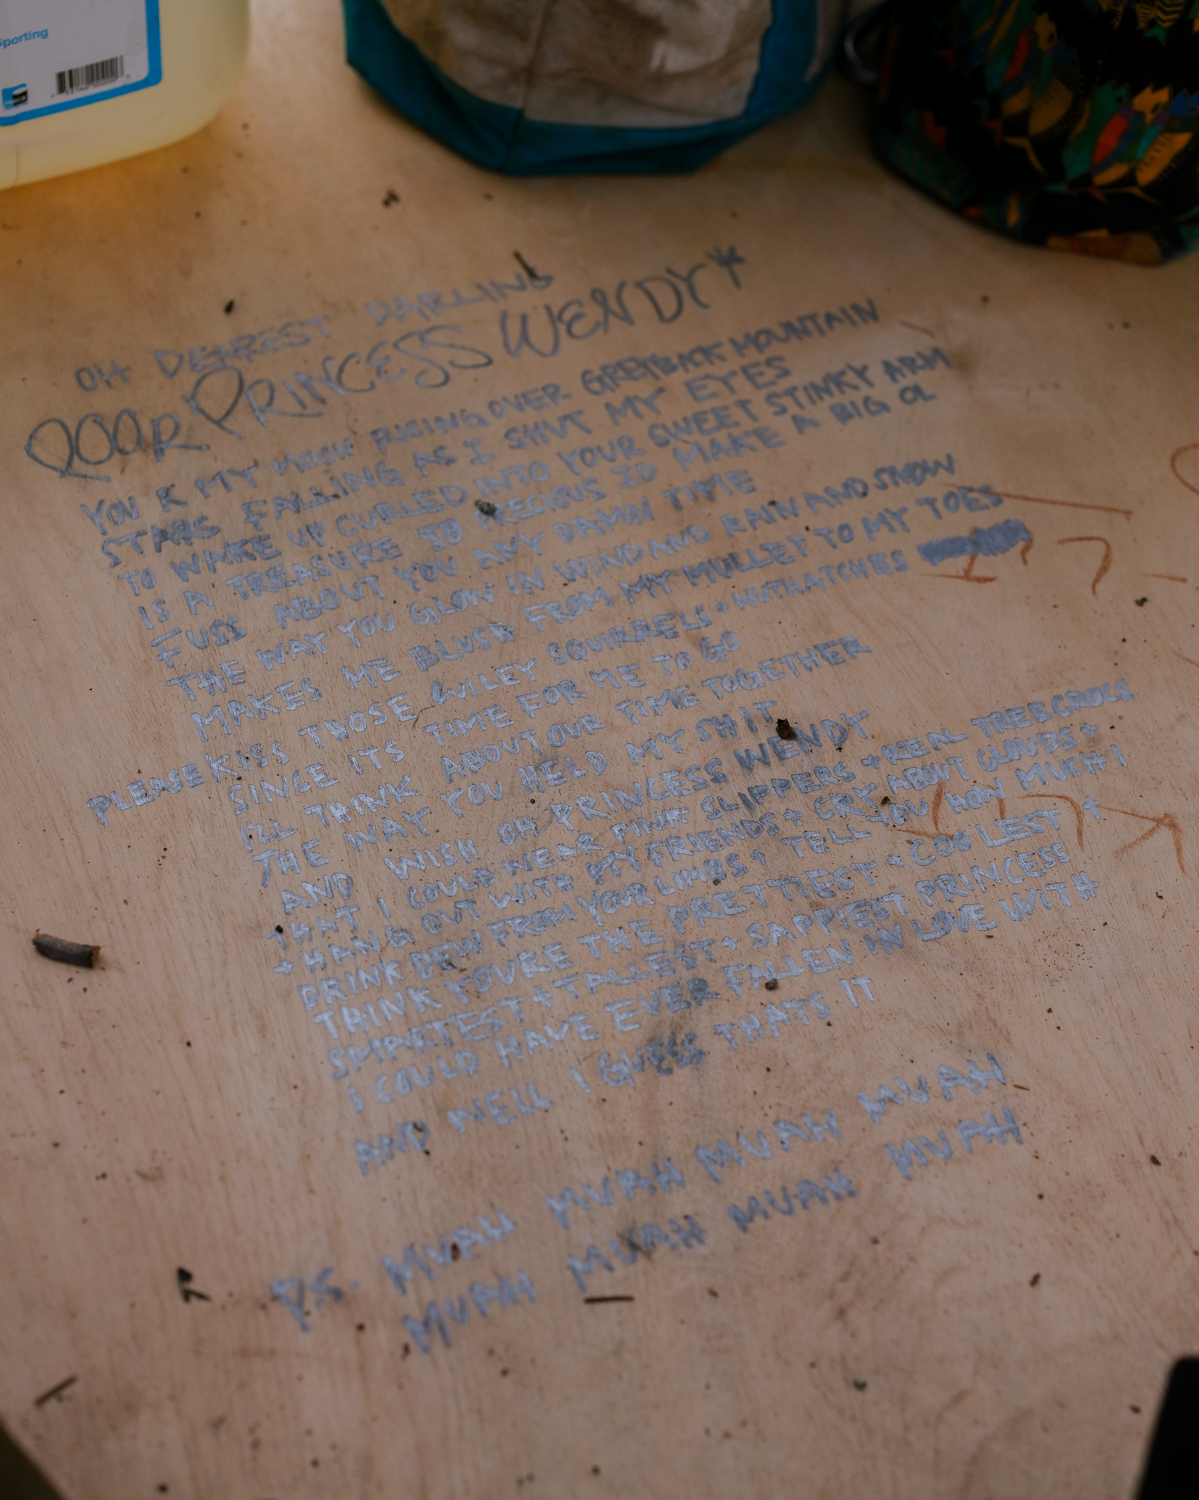 Sporting
OH DEAREST DARLING
POOR PRINCESS WENDY*
YOU R MY MOON RISING OVER GREYBACK MOUNTAIN
STARS FALLING AS I SHUT MY EYES
TO WAKE UP CURLED INTO YOUR SWEET STINKY ARM
IS A TREASURE SO PRECIOUS ID MAKE A BIG OL
FUSS ABOUT YOU ANY DAMN TIME
THE WAY YOU GLOW IN WIND AND RAIN AND SNOW
MAKES ME BLUSH FROM MY MULLET TO MY TOES
PLEASE KISS THOSE WILEY SQUIRRELS + NUTHATCHES
SINCE ITS TIME FOR ME TO GO
I'LL THINK ABOUT OUR TIME TOGETHER
THE WAY YOU HELD MY SHIT
AND WISH OH PRINCESS WENDY
THAT I COULD WEAR PINK SLIPPERS + REAL TREECROCS
+ HANG OUT WITH MY FRIENDS + CRY ABOUT CLOUDS +
DRINK DEW FROM YOUR LIMBS + TELL YOU HOW MUCH I
THINK YOURE THE PRETTIEST + COOLEST +
SMARTEST + TALLEST + SAPPIEST PRINCESS
I COULD HAVE EVER FALLEN IN LOVE WITH
AND WELL I GUESS THATS IT
P.S. MUAH MUAH MUAH MUAH
MUAH MUAH MUAH MUAH